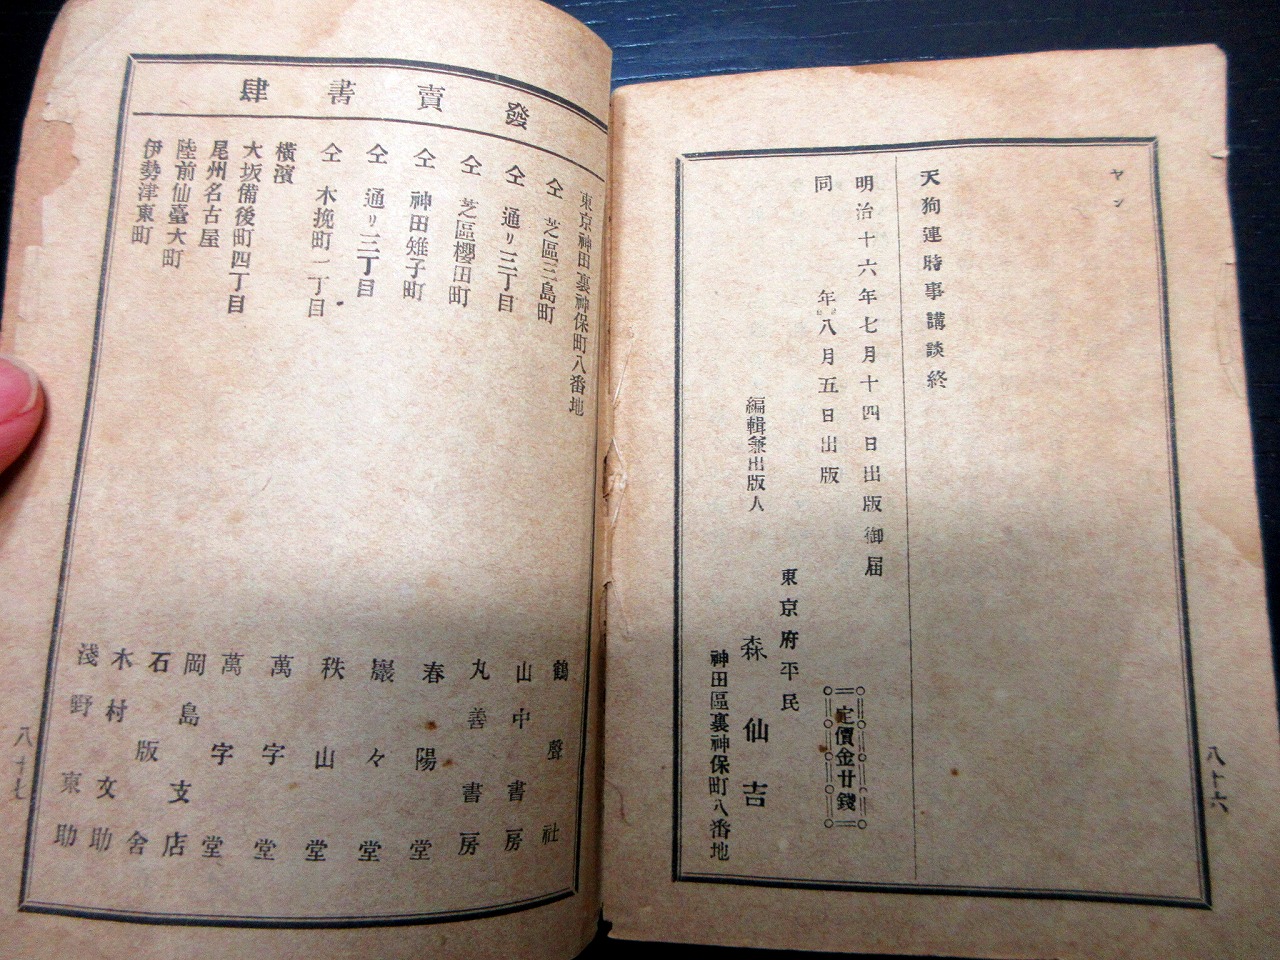 ヤン
天狗連時事講談終
明治十六年七月十四日出版御届
同年八月五日出版
定價金廿錢
東京府平民
編輯兼出版人 森仙吉
神田區裏神保町八番地
八十六
發賣書肆
東京神田裏神保町八番地 鶴聲社
仝 芝區三島町 山中書房
仝 通リ三丁目 丸善書房
仝 芝區櫻田町 春陽堂
仝 神田雉子町 巖々堂
仝 通リ三丁目 秩山堂
仝 木挽町一丁目 萬字堂
橫濱 萬字堂
大坂備後町四丁目 岡島支店
尾州名古屋 石版舍
陸前仙臺大町 木村文助
伊勢津東町 淺野東助
八十七